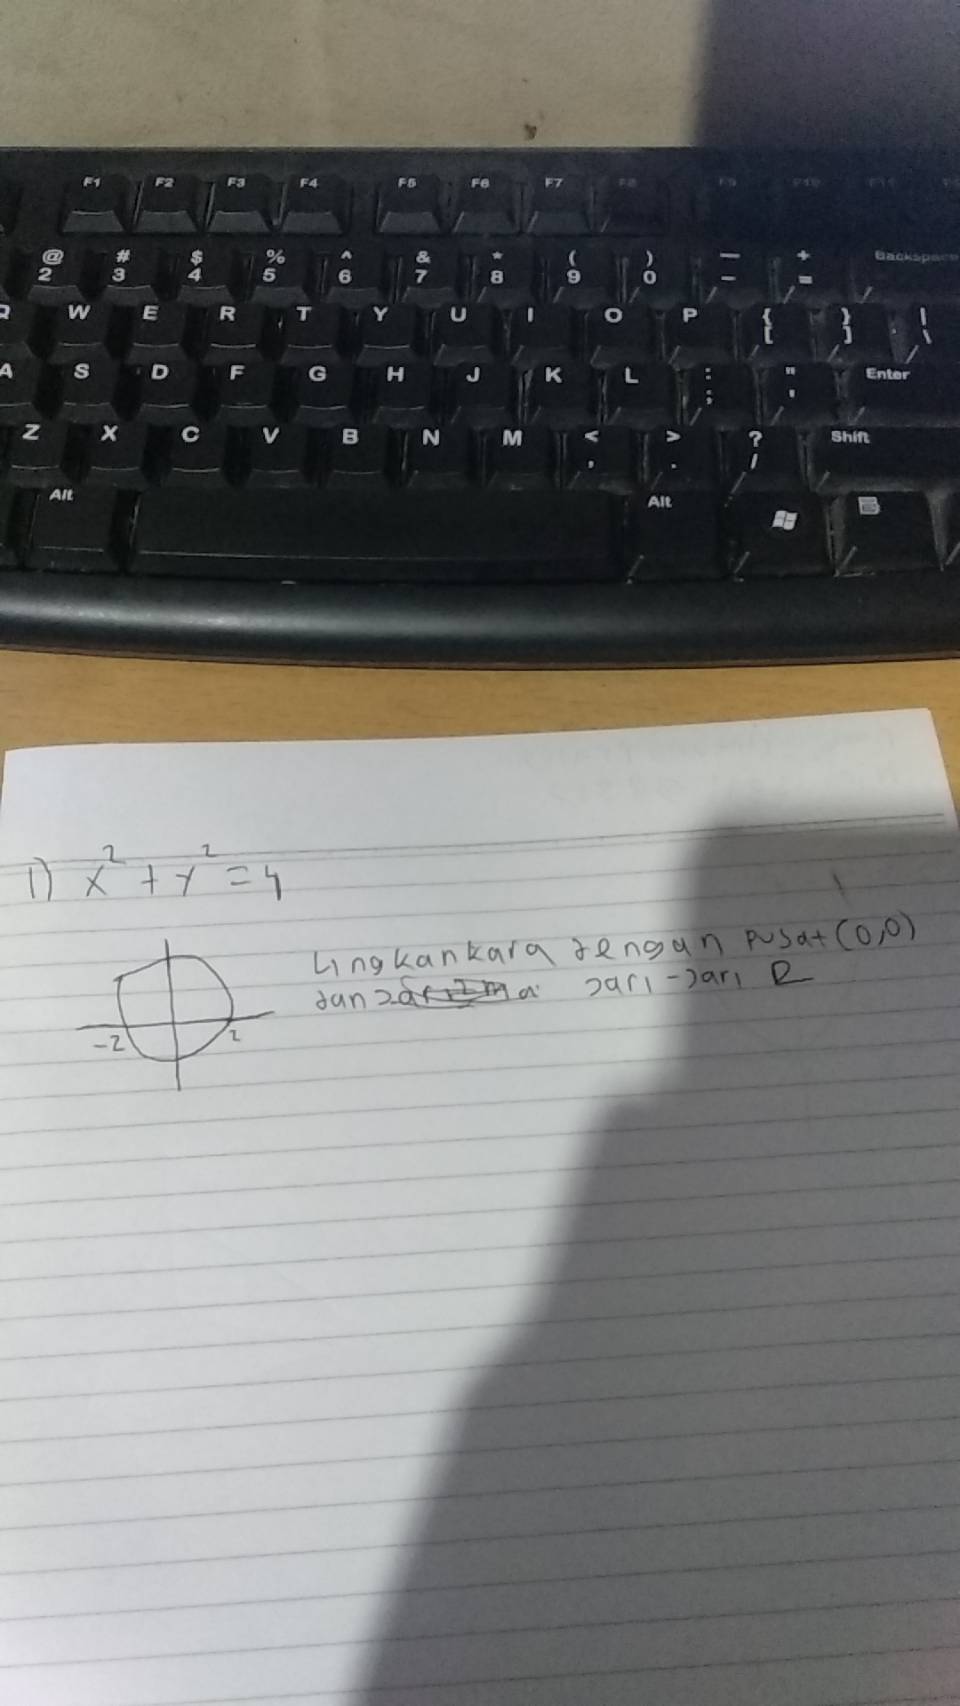 F1 F2 F3 F4 F5 F6 F7 F8 F9 F10 F11
@ # $ % ^ & * ( ) — +
2 3 4 5 6 7 8 9 0 - = Backspace
W E R T Y U I O P { } |
[ ] \
A S D F G H J K L : " Enter
; '
Z X C V B N M < > ? Shift
, . /
Alt Alt
1) x² + y² = 4
Lingkankara dengan pusat (0,0)
dan jari-jari R
-2 2